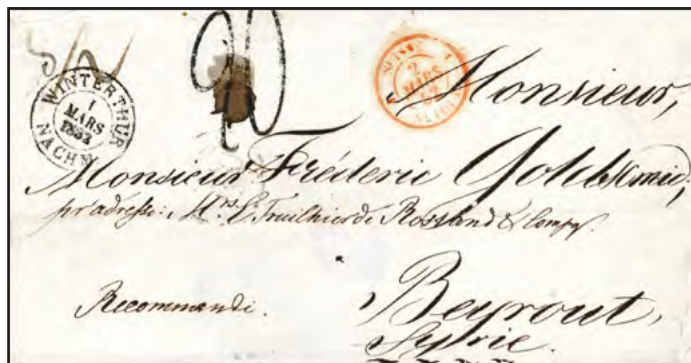 20
WINTERTHUR
1
MARS
1852
NACHM
SUISSE
2
MARS
52
Monsieur,
Monsieur Fréderic Goldschmid,
pr adresse: Mrs Truilhier de Rostand & Compe.
Recommandé.
Beyrout,
Syrie.